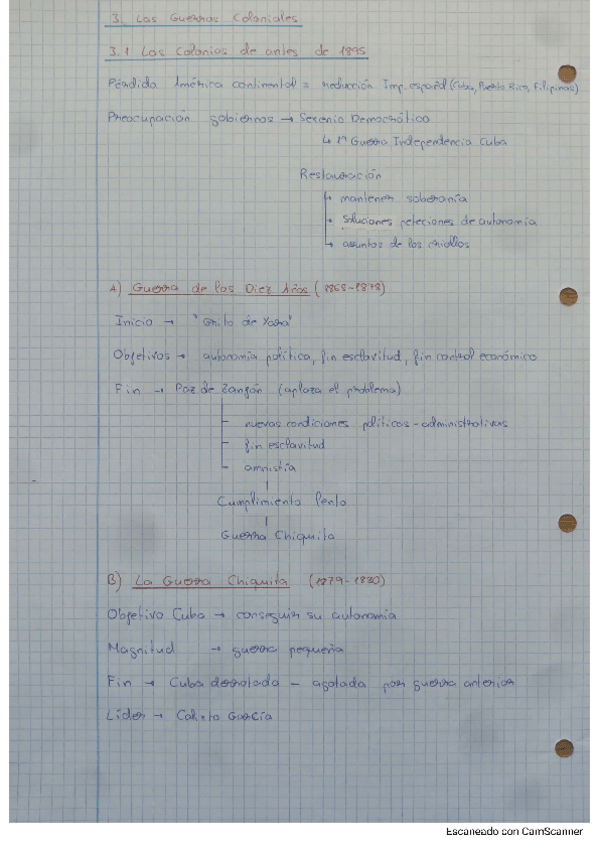 3. Las Guerras Coloniales
3.1 Las Colonias de antes de 1895
Pérdida América continental = reducción Imp. español (Cuba, Puerto Rico, Filipinas)
Preocupación gobiernos → Sexenio Democrático
↳ 1ª Guerra Independencia Cuba
Restauración
→ mantener soberanía
→ Soluciones peticiones de autonomía
→ asuntos de los criollos
A) Guerra de los Diez Años (1868-1878)
Inicio → "Grito de Yara"
Objetivos → autonomía política, fin esclavitud, fin control económico
Fin → Paz de Zanjón (aplaza el problema)
nuevas condiciones políticas - administrativas
fin esclavitud
amnistía
Cumplimiento lento
Guerra Chiquita
B) La Guerra Chiquita (1879-1880)
Objetivo Cuba → conseguir su autonomía
Magnitud → guerra pequeña
Fin → Cuba derrotada - agotada por guerra anterior
Líder → Calixto García
Escaneado con CamScanner